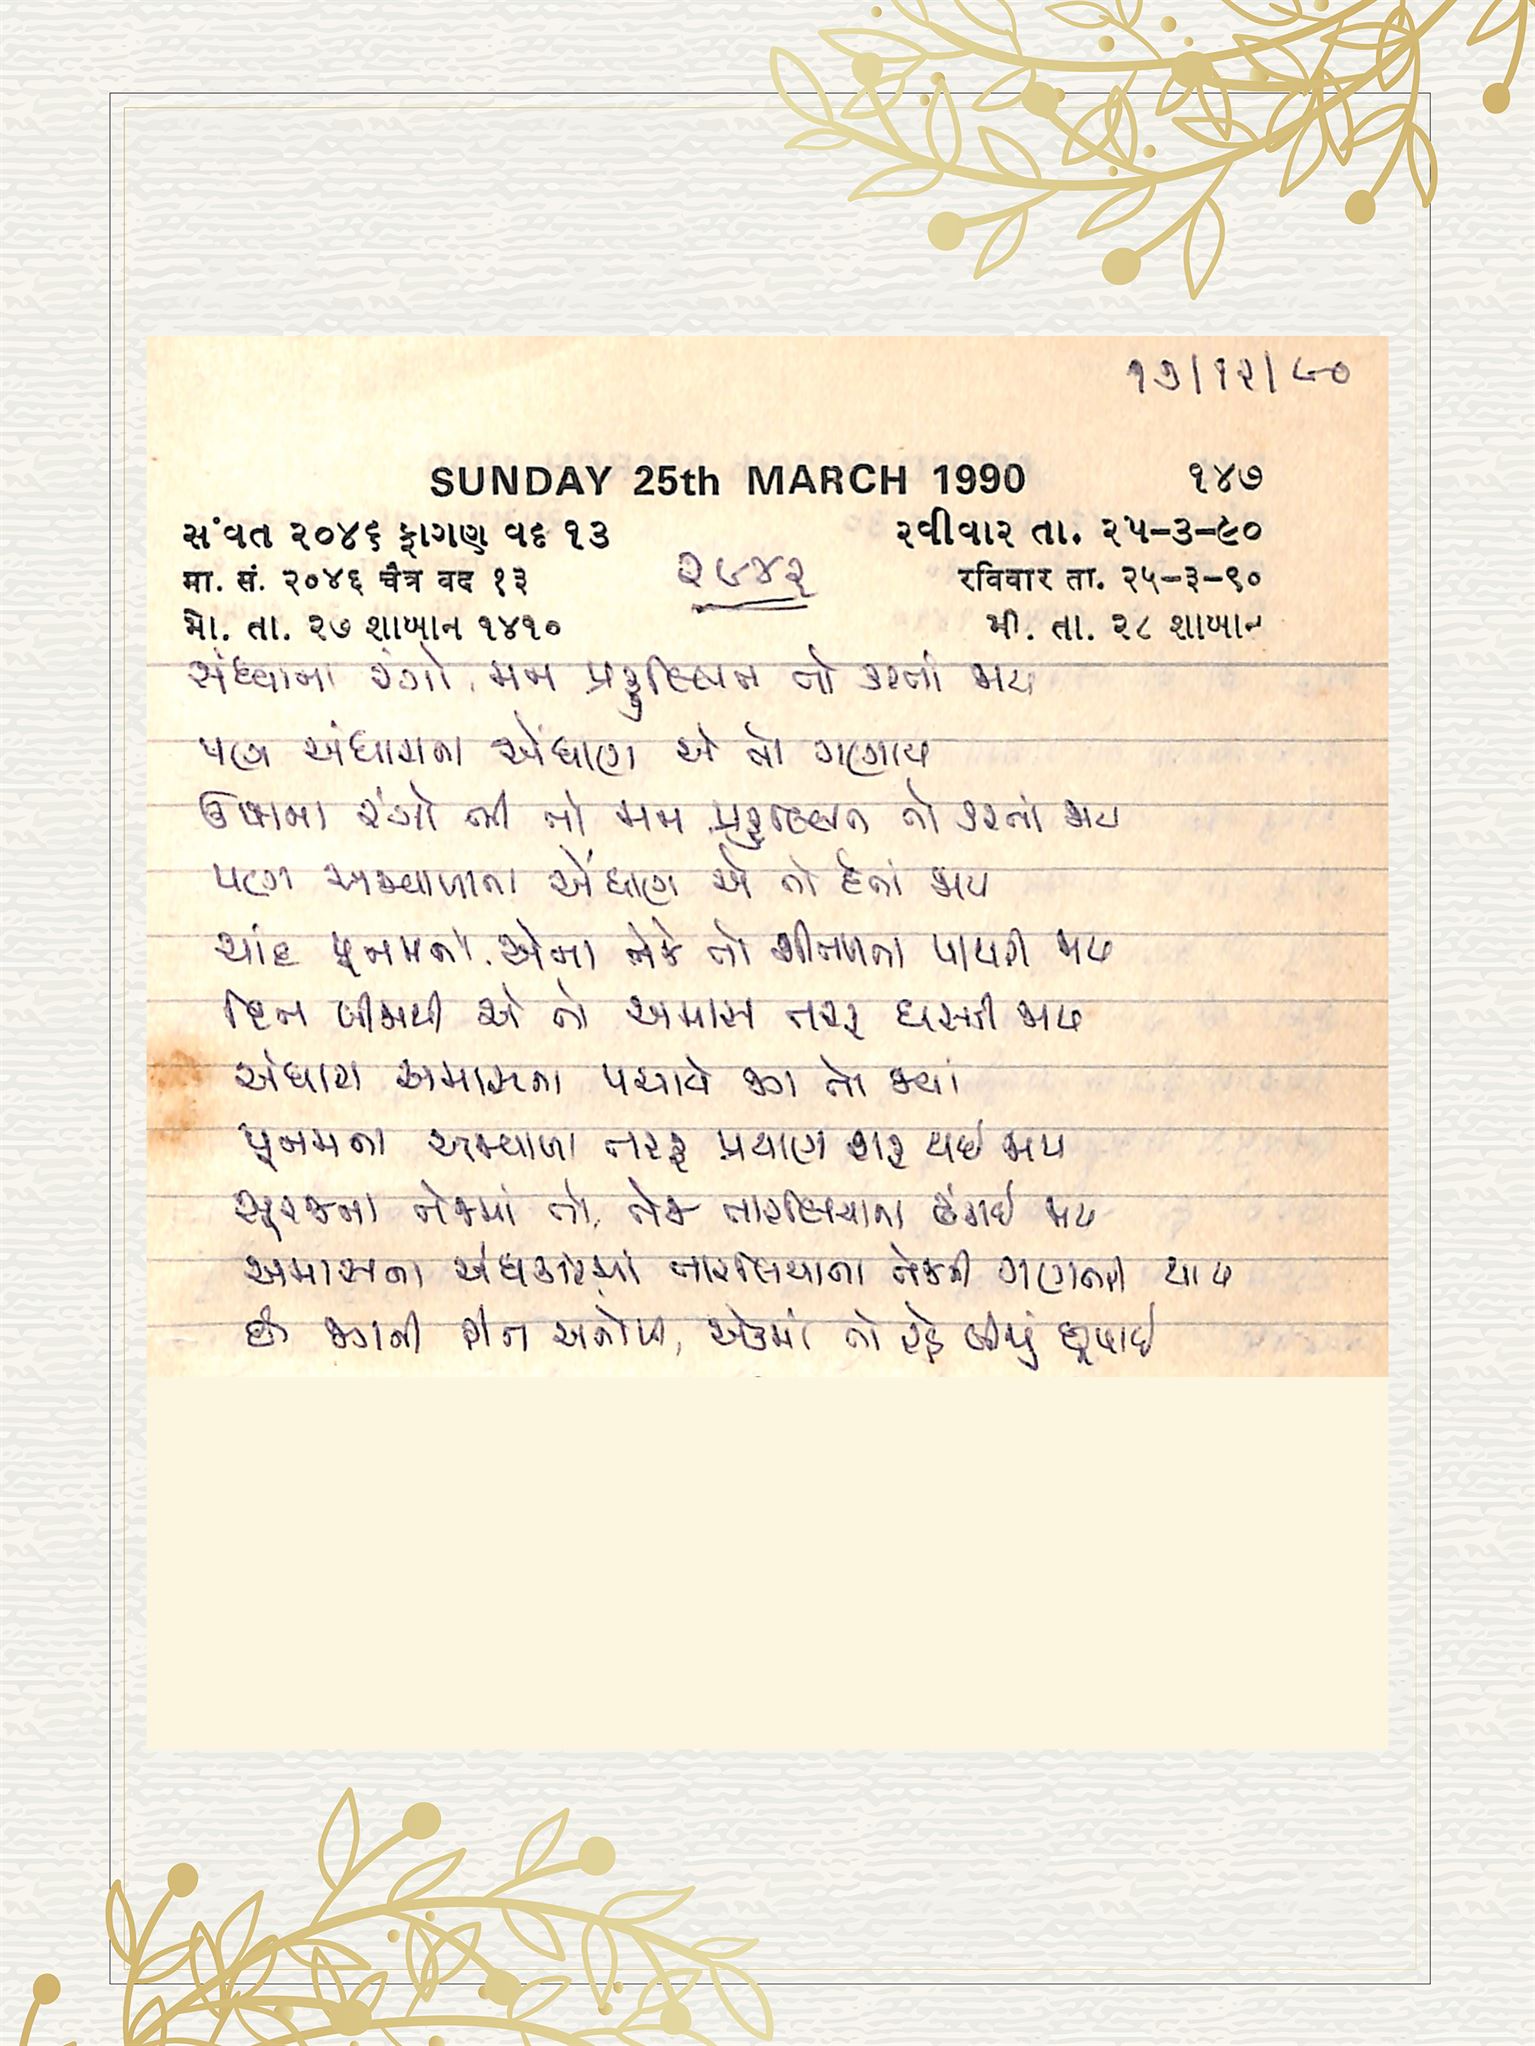 ૧૭/૧૨/૯૦
SUNDAY 25th MARCH 1990 ૧૪૭
સંવત ૨૦૪૬ ફાગણ વદ ૧૩ રવીવાર તા. ૨૫-૩-૯૦
मा. सं. २०४६ चैत्र वद १३ रविवार ता. २५-३-९०
મો. તા. ૨૭ શાબાન ૧૪૧૦ મી. તા. ૨૮ શાબાન
૨૯૪૨
સંધ્યાના રંગો, મન પ્રફુલ્લિત તો કરતાં જાય
પણ અંધારાના એંધાણ એ તો ગણાય
ઉષાના રંગો ભી તો મન પ્રફુલ્લિત તો કરતાં જાય
પણ અજવાળાના એંધાણ એ તો દેતાં જાય
ચાંદ પૂનમનો, એના તેજે તો શીતળતા પાથરી જાય
દિન બીજાથી એ તો અમાસ તરફ ઘસતી જાય
અંધારા અમાસના પચાવે જગ તો જ્યાં
પૂનમના અજવાળા તરફ પ્રયાણ શરૂ થઈ જાય
સૂરજના તેજમાં તો, તેજ તારલિયાના ઢંકાઈ જાય
અમાસના અંધકારમાં તારલિયાના તેજની ગણતરી થાય
છે જગની રીત અનોખી, એકમાં તો રહે બીજું છૂપાઈ